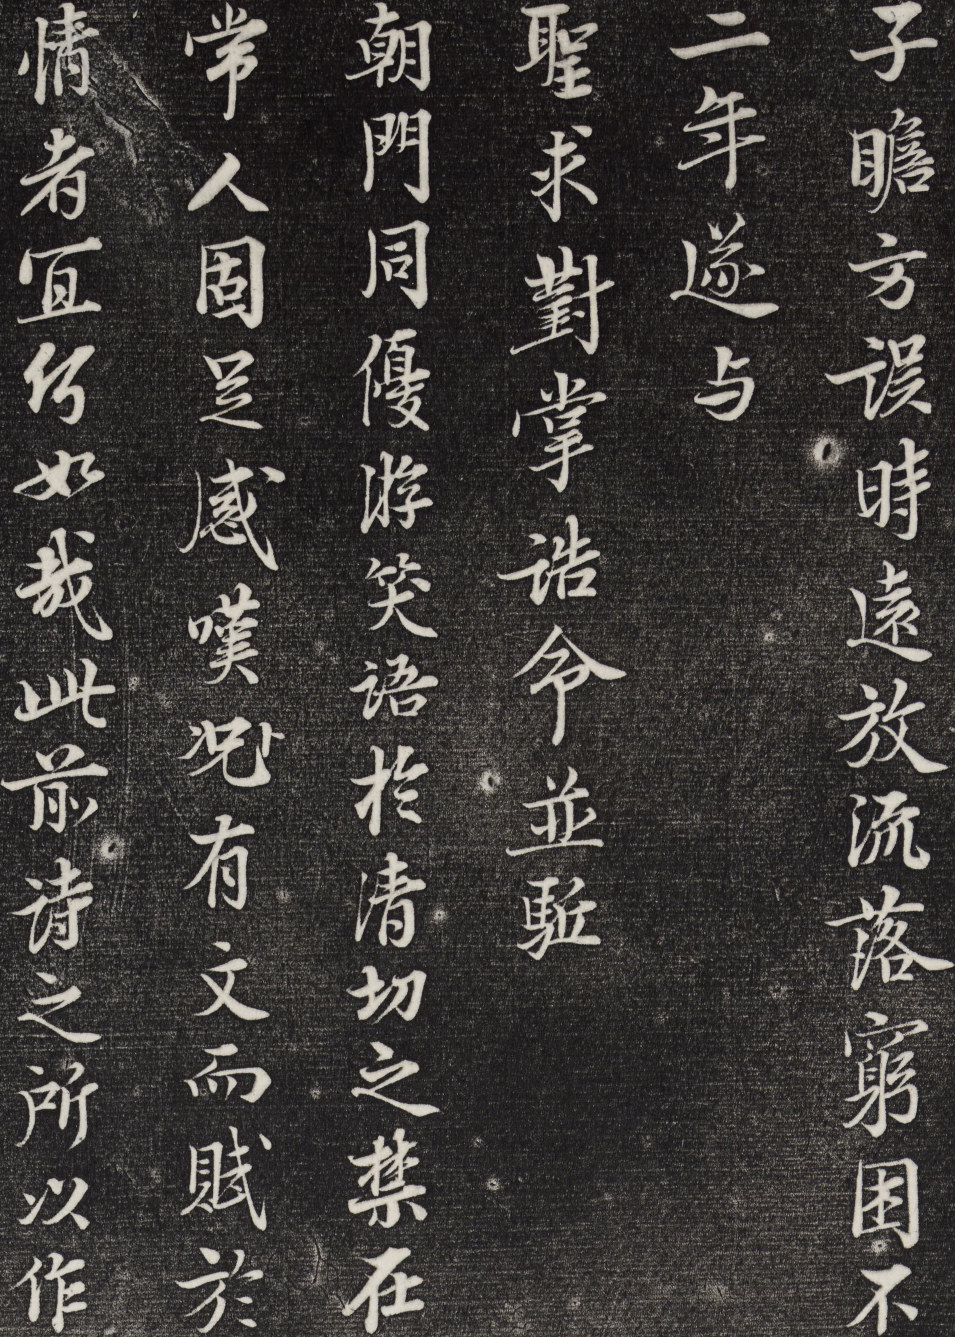 子瞻方误時遠放流落窮困不
二年遂与
聖求對掌誥令並駈
朝門同優游笑語於清切之禁在
常人固足感嘆况有文而賦於
情者宜何如哉此前诗之所以作